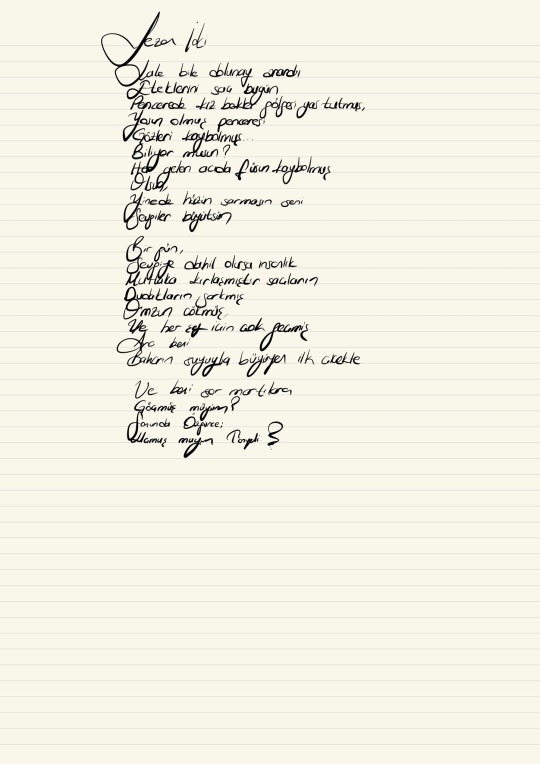 bile dolunay
Eteklerini saç bugün
Pencerede kız gölgesi yas tutmuş,
Yosun olmuş penceresi
Gözleri kaybolmuş...
Biliyor musun?
gelen acıda füsun kaybolmuş
Olsun,
Yinede hüzün sarmasın seni
Sevgiler büyütsün
Bir gün,
Sevgiye dahil olursa insanlık
Mutlaka kırlaşmıştır saçların
Dudakların sarkmış
Omzun çökmüş,
Ve her şey için çok geçmiş
Ara beni
Baharın suyuyla büyüyen ilk çiçekte
Ve beni sor martılara
Göçmüş müyüm?
Sonunda
Olamuş muyum